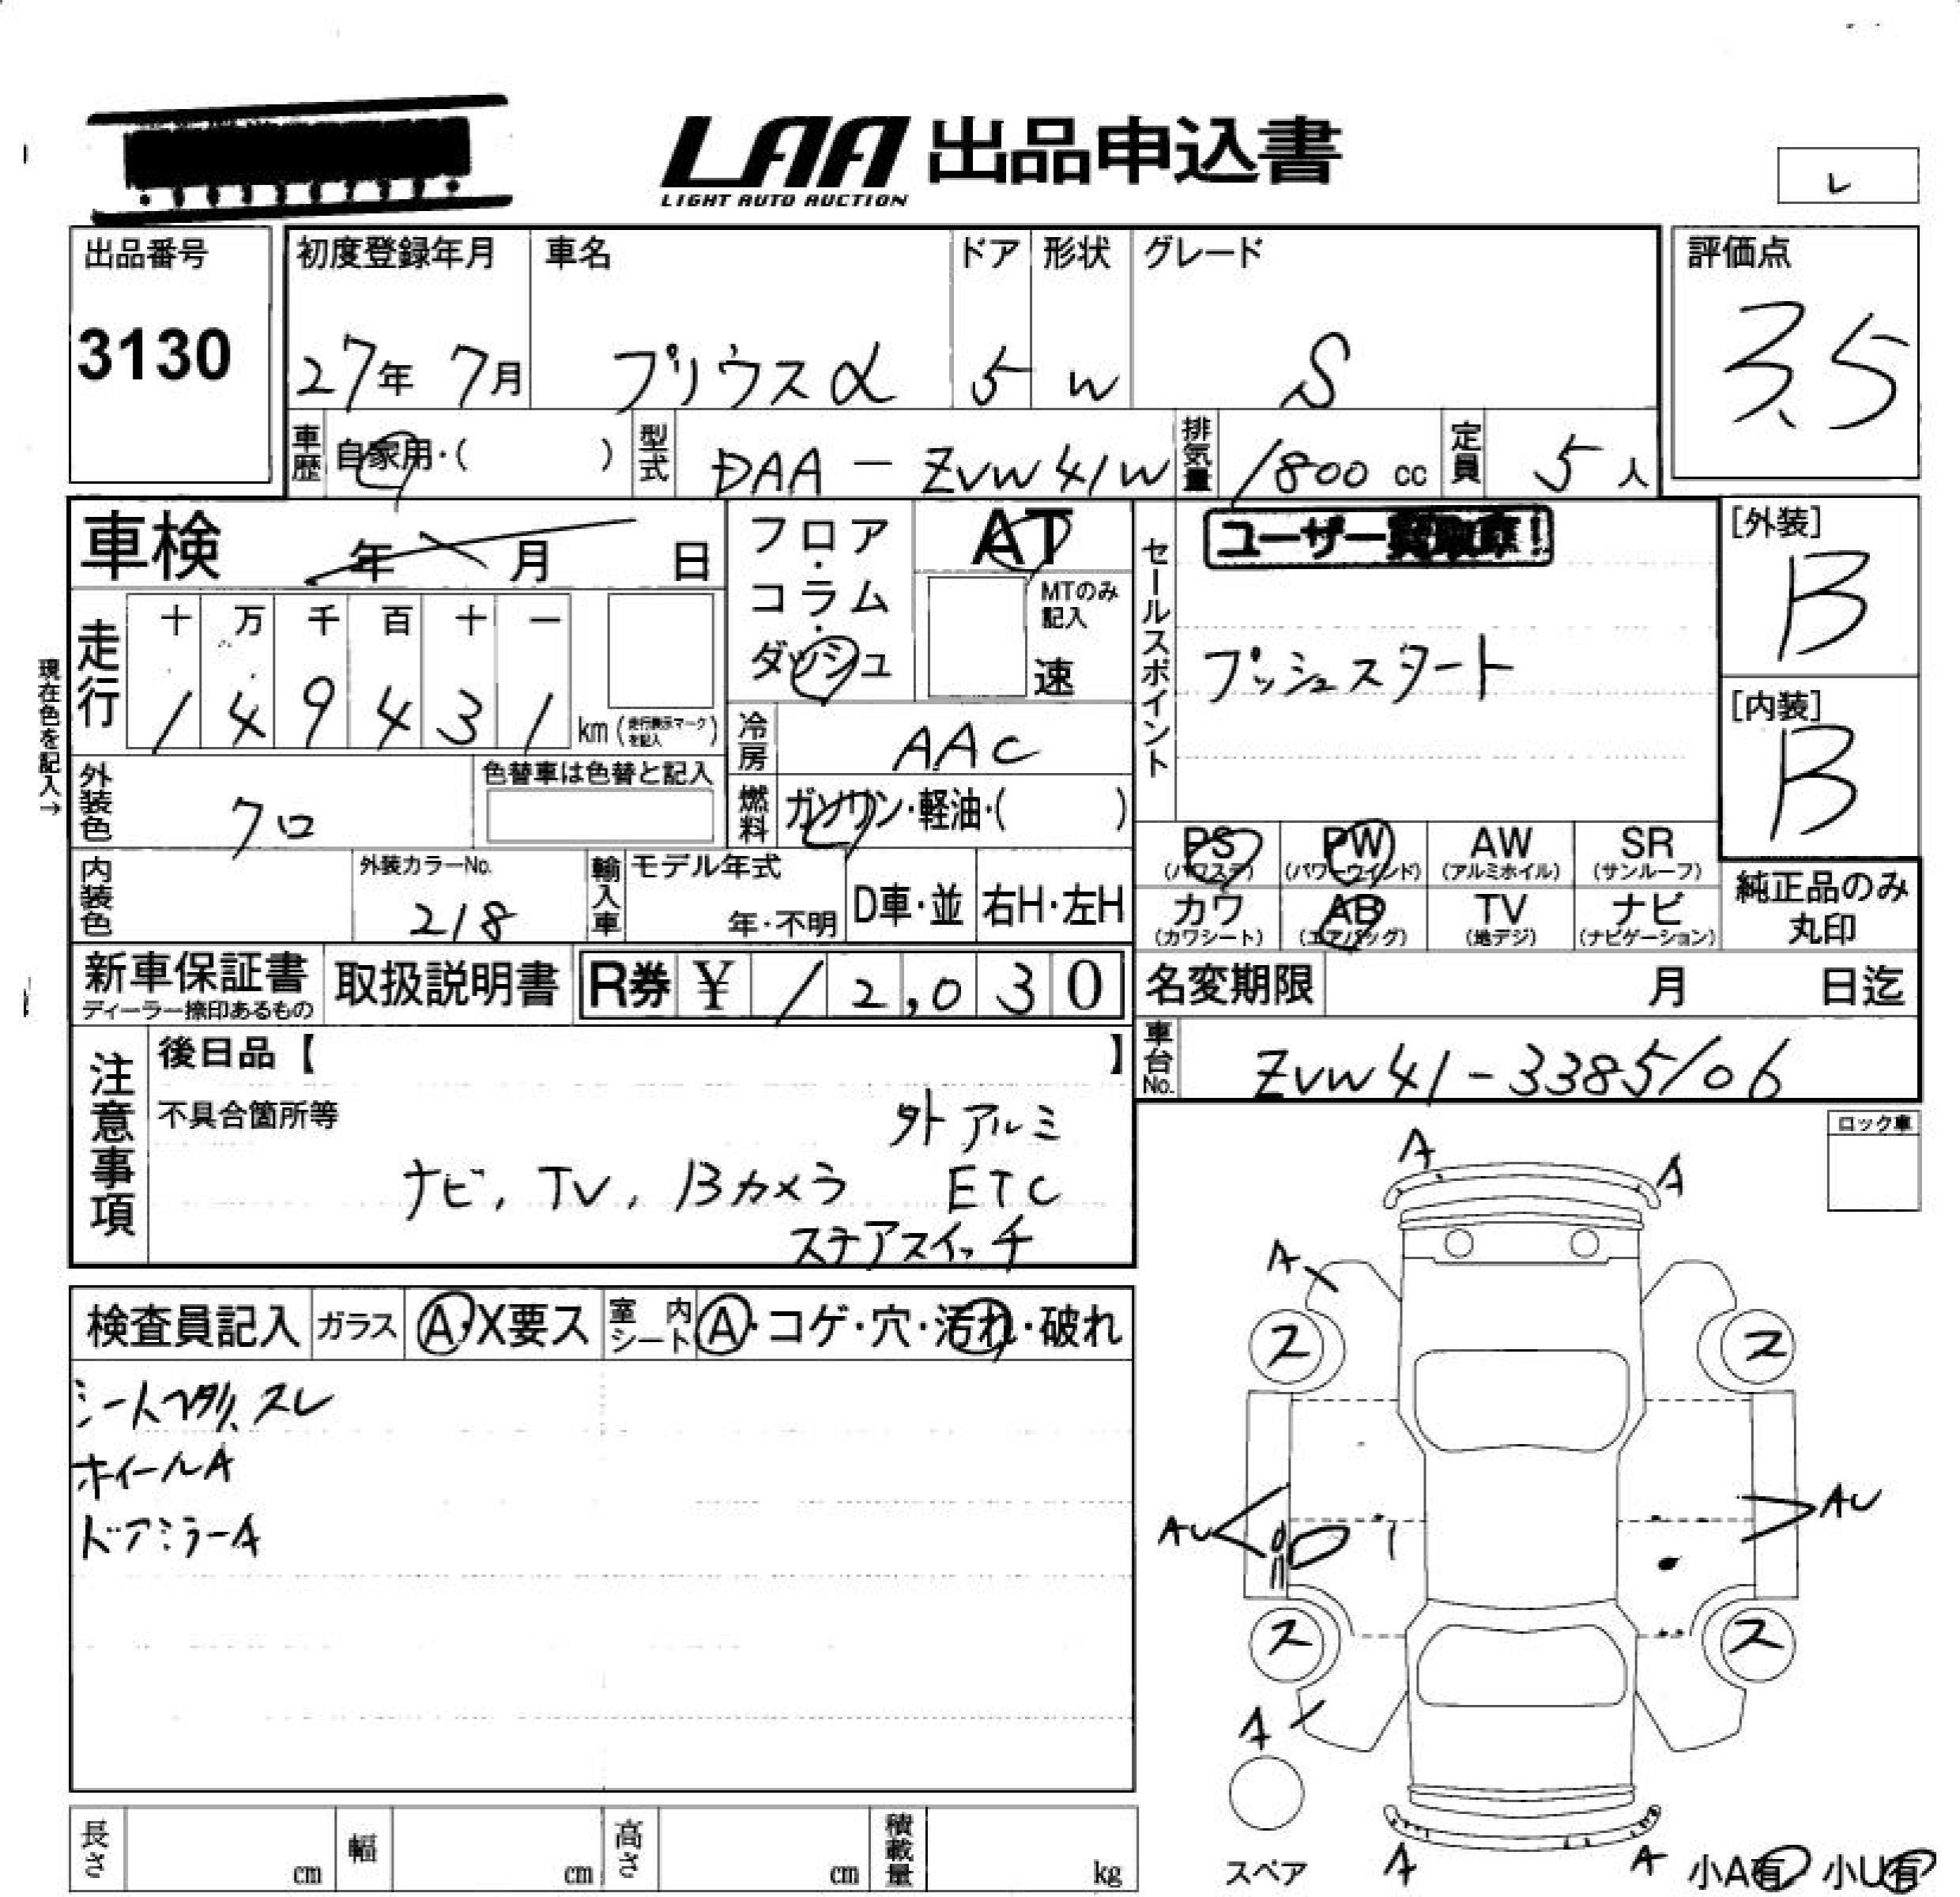 LAA 出品申込書
LIGHT AUTO AUCTION
レ
出品番号
3130
初度登録年月
27年 7月
車名
プリウスα
ドア
5
形状
W
グレード
S
評価点
3.5
車歴 自家用・( )
型式 DAA-ZVW41W
排気量 1800 cc
定員 5人
車検 年 月 日
フロア・コラム・ダッシュ
AT
MTのみ記入
速
セールスポイント
ユーザー買取車!
プッシュスタート
[外装]
B
[内装]
B
現在色を記入→
走行
十 万 千 百 十 一
1 4 9 4 3 1 km (走行表示マークを記入)
冷房 AAC
外装色 クロ
色替車は色替と記入
燃料 ガソリン・軽油・( )
内装色
外装カラーNo.
218
輸入車
モデル年式
年・不明
D車・並
右H・左H
PS (パワステ)
PW (パワーウインド)
AW (アルミホイル)
SR (サンルーフ)
カワ (カワシート)
AB (エアバッグ)
TV (地デジ)
ナビ (ナビゲーション)
純正品のみ丸印
新車保証書
ディーラー捺印あるもの
取扱説明書
R券 ¥ 12,030
名変期限 月 日迄
車台No. ZVW41-3385106
注意事項
後日品【 】
不具合箇所等
外アルミ
ナビ, TV, Bカメラ ETC
ステアスイッチ
ロック車
検査員記入
ガラス A・X要ス
室内シート A・コゲ・穴・汚れ・破れ
シートヘタリ、スレ
ホイールA
ドアミラーA
A A
A
ス ス
AU AU
ス ス
A
スペア
A A
小A有 小U有
長さ cm
幅 cm
高さ cm
積載量 kg